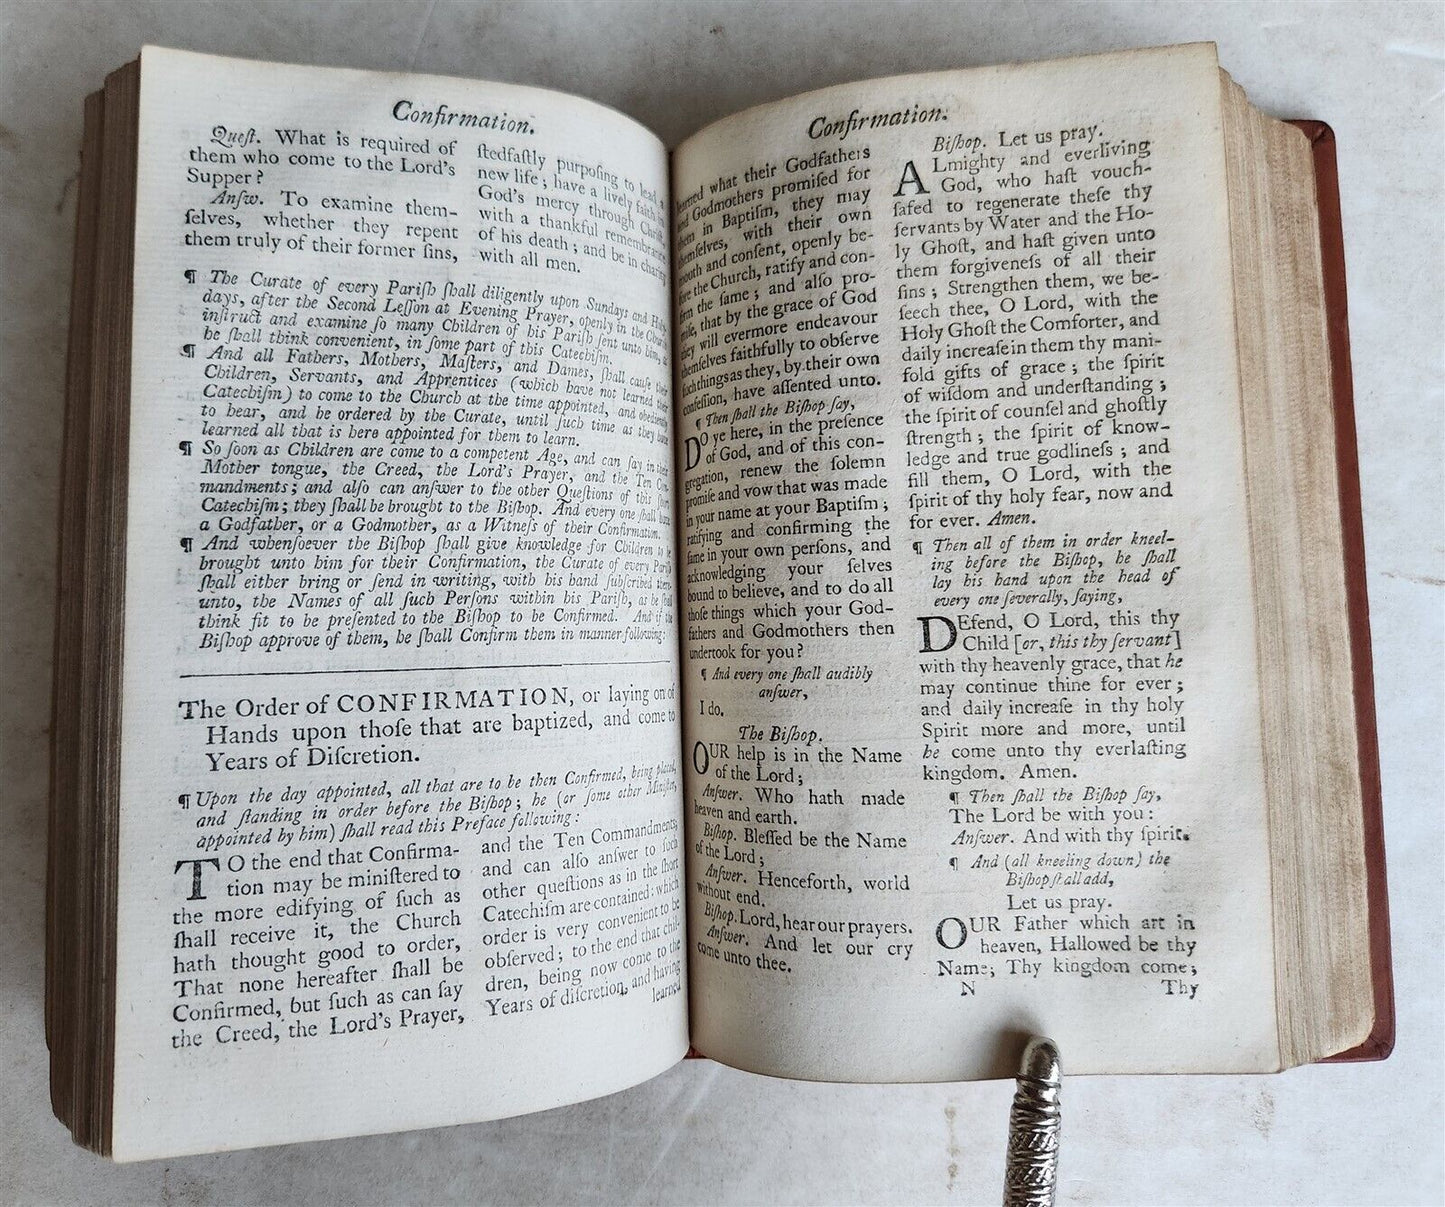 Confirmation.
Queſt. What is required of
them who come to the Lord's
Supper?
Anſw. To examine them-
ſelves, whether they repent
them truly of their former ſins,
ſtedfaſtly purpoſing to lead a
new life; have a lively faith in
God's mercy through Chriſt,
with a thankful remembrance
of his death; and be in charity
with all men.
¶ The Curate of every Pariſh ſhall diligently upon Sundays and Holy-
days, after the Second Leſſon at Evening Prayer, openly in the Church
inſtruct and examine ſo many Children of his Pariſh ſent unto him, as
he ſhall think convenient, in ſome part of this Catechiſm.
¶ And all Fathers, Mothers, Maſters, and Dames, ſhall cauſe their
Children, Servants, and Apprentices (which have not learned their
Catechiſm) to come to the Church at the time appointed, and obediently
to hear, and be ordered by the Curate, until ſuch time as they have
learned all that is here appointed for them to learn.
¶ So ſoon as Children are come to a competent Age, and can ſay in their
Mother tongue, the Creed, the Lord's Prayer, and the Ten Com-
mandments; and alſo can anſwer to the other Queſtions of this ſhort
Catechiſm; they ſhall be brought to the Biſhop. And every one ſhall have
a Godfather, or a Godmother, as a Witneſs of their Confirmation.
¶ And whenſoever the Biſhop ſhall give knowledge for Children to be
brought unto him for their Confirmation, the Curate of every Pariſh
ſhall either bring or ſend in writing, with his hand ſubſcribed there-
unto, the Names of all ſuch Perſons within his Pariſh, as he ſhall
think fit to be preſented to the Biſhop to be Confirmed. And if the
Biſhop approve of them, he ſhall Confirm them in manner following:
The Order of CONFIRMATION, or laying on of
Hands upon thoſe that are baptized, and come to
Years of Diſcretion.
¶ Upon the day appointed, all that are to be then Confirmed, being placed,
and ſtanding in order before the Biſhop; he (or ſome other Miniſter,
appointed by him) ſhall read this Preface following:
TO the end that Confirma-
tion may be miniſtered to
the more edifying of ſuch as
ſhall receive it, the Church
hath thought good to order,
That none hereafter ſhall be
Confirmed, but ſuch as can ſay
the Creed, the Lord's Prayer,
and the Ten Commandments,
and can alſo anſwer to ſuch
other queſtions as in the ſhort
Catechiſm are contained: which
order is very convenient to be
obſerved; to the end that chil-
dren, being now come to the
Years of diſcretion, and having
learned
Confirmation.
learned what their Godfathers
and Godmothers promiſed for
them in Baptiſm, they may
themſelves, with their own
mouth and conſent, openly be-
fore the Church, ratify and con-
firm the ſame; and alſo pro-
miſe, that by the grace of God
they will evermore endeavour
themſelves faithfully to obſerve
ſuch things as they, by their own
confeſſion, have aſſented unto.
¶ Then ſhall the Biſhop ſay,
DO ye here, in the preſence
of God, and of this con-
gregation, renew the ſolemn
promiſe and vow that was made
in your name at your Baptiſm;
ratifying and confirming the
ſame in your own perſons, and
acknowledging your ſelves
bound to believe, and to do all
thoſe things which your God-
fathers and Godmothers then
undertook for you?
¶ And every one ſhall audibly
anſwer,
I do.
The Biſhop.
OUR help is in the Name
of the Lord;
Anſwer. Who hath made
heaven and earth.
Biſhop. Bleſſed be the Name
of the Lord;
Anſwer. Henceforth, world
without end.
Biſhop. Lord, hear our prayers.
Anſwer. And let our cry
come unto thee.
Biſhop. Let us pray.
ALmighty and everliving
God, who haſt vouch-
ſafed to regenerate theſe thy
ſervants by Water and the Ho-
ly Ghoſt, and haſt given unto
them forgiveneſs of all their
ſins; Strengthen them, we be-
ſeech thee, O Lord, with the
Holy Ghoſt the Comforter, and
daily increaſe in them thy mani-
fold gifts of grace; the ſpirit
of wiſdom and underſtanding;
the ſpirit of counſel and ghoſtly
ſtrength; the ſpirit of know-
ledge and true godlineſs; and
fill them, O Lord, with the
ſpirit of thy holy fear, now and
for ever. Amen.
¶ Then all of them in order kneel-
ing before the Biſhop, he ſhall
lay his hand upon the head of
every one ſeverally, ſaying,
DEfend, O Lord, this thy
Child [or, this thy ſervant]
with thy heavenly grace, that he
may continue thine for ever;
and daily increaſe in thy holy
Spirit more and more, until
he come unto thy everlaſting
kingdom. Amen.
¶ Then ſhall the Biſhop ſay,
The Lord be with you:
Anſwer. And with thy ſpirit.
¶ And (all kneeling down) the
Biſhop ſhall add,
Let us pray.
OUR Father which art in
heaven, Hallowed be thy
Name; Thy kingdom come;
N Thy